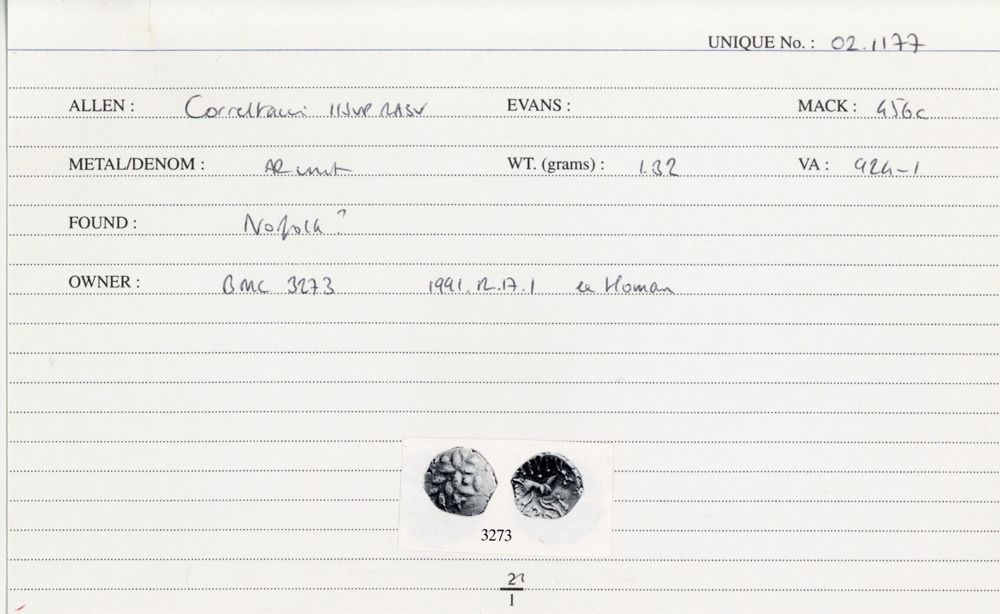 UNIQUE No. : 02.1177
ALLEN : Corieltauvi IISVP RASV EVANS : MACK : 456c
METAL/DENOM : AR unit WT. (grams) : 1.32 VA : 924-1
FOUND : Norfolk?
OWNER : BMC 3273 1991.12.17.1 ex Homan
3273
1